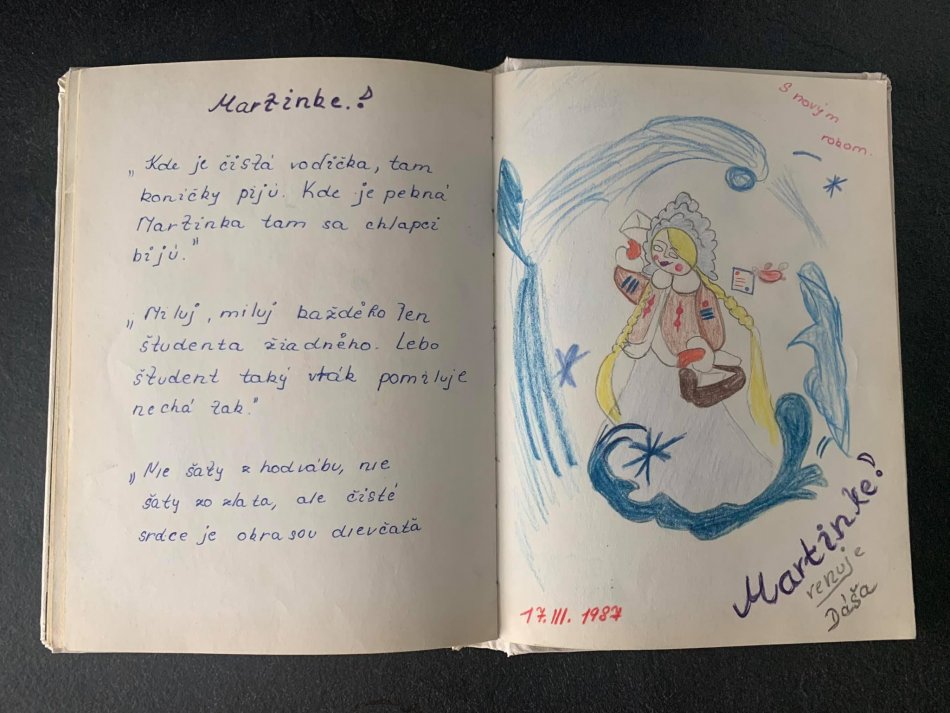 Martinke!
„Kde je čistá vodička, tam
koníčky pijú. Kde je pekná
Martinka tam sa chlapci
bijú."
„Miluj, miluj každého len
študenta žiadného. Lebo
študent taký vták pomiluje
nechá tak."
„Nie šaty z hodvábu, nie
šaty zo zlata, ale čisté
srdce je okrasou dievčată
S novým
rokom.
Martinke!
venuje
Dáša
17. III. 1987